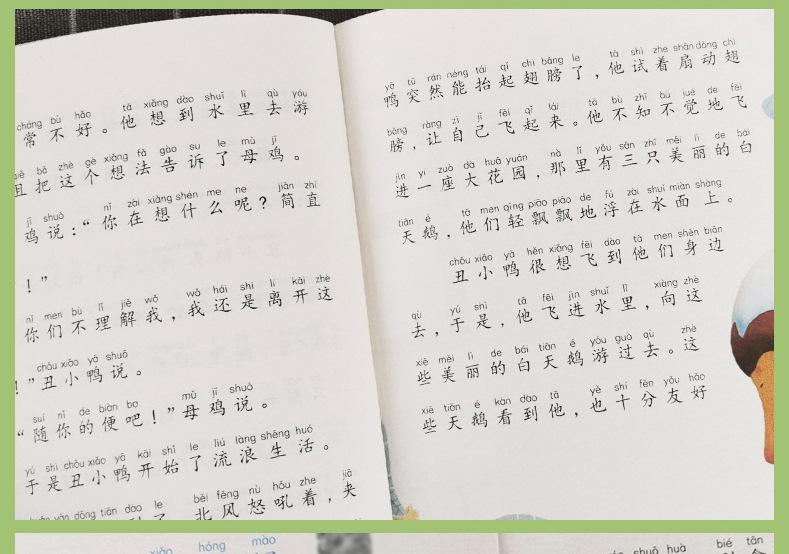 cháng bù hǎo tā xiǎng dào shuǐ lǐ qù yóu
常不好。他想到水里去游
bǎ zhè gè xiǎng fǎ gào su le mǔ jī
且把这个想法告诉了母鸡。
jī shuō nǐ zài xiǎng shén me ne jiǎn zhí
鸡说：“你在想什么呢？简直
！”
nǐ men bù lǐ jiě wǒ wǒ hái shì lí kāi zhè
你们不理解我，我还是离开这
chǒu xiǎo yā shuō
！”丑小鸭说。
suí nǐ de biàn ba mǔ jī shuō
“随你的便吧！”母鸡说。
yú shì chǒu xiǎo yā kāi shǐ le liú làng shēng huó
于是丑小鸭开始了流浪生活。
dōng tiān dào le běi fēng nù hǒu zhe jiā
到了 北风怒吼着，夹
yā tū rán néng tái qǐ chì bǎng le tā shì zhe shān dòng chì
鸭突然能抬起翅膀了，他试着扇动翅
bǎng ràng zì jǐ fēi qǐ lái tā bù zhī bù jué de fēi
膀，让自己飞起来。他不知不觉地飞
jìn yí zuò dà huā yuán nà lǐ yǒu sān zhī měi lì de bái
进一座大花园，那里有三只美丽的白
tiān é tā men qīng piāo piāo de fú zài shuǐ miàn shàng
天鹅，他们轻飘飘地浮在水面上。
chǒu xiǎo yā hěn xiǎng fēi dào tā men shēn biān
丑小鸭很想飞到他们身边
qù yú shì tā fēi jìn shuǐ lǐ xiàng zhè
去，于是，他飞进水里，向这
xiē měi lì de bái tiān é yóu guò qù zhè
些美丽的白天鹅游过去。这
xiē tiān é kàn dào tā yě shí fēn yǒu hǎo
些天鹅看到他，也十分友好
xiǎo hóng mào
shuō huà bié tān